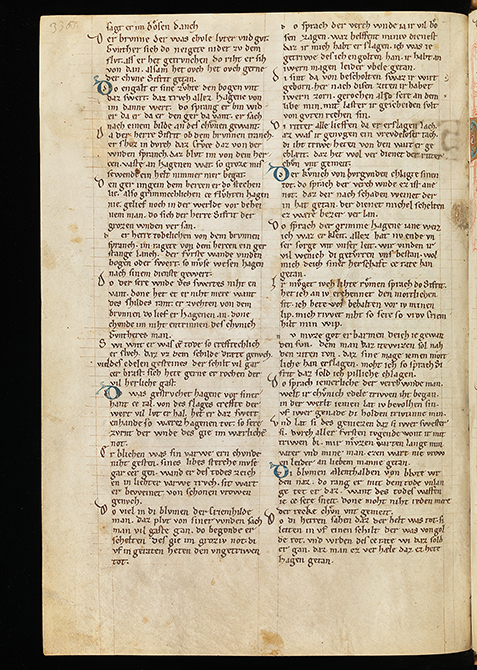 335
sagt er im bosen danch
Der brunne der was chule luter vnd gvt.
Gvnther sich do neigete nider zv dem
flvt. als er het getrvnchen do riht er sich
von dan. alsam het ovch het ovch gerne
der chvne Sifrit getan.
Do engalt er siner zvhte den bogen vnt
daz swert. daz trvch allez hagene von
im danne wert. do sprang er hin wid
er da er da den ger da vant. er sach
nach einem bilde an des chvnen gewant.
Da der herre Sifrit ob dem brvnnen tranch
er schoz in dvrch daz crvce daz von der
wnden spranch daz blvt im von dem her
zen. vaste an hagenen wat. so groze missewende ein helt nimmer mer begat.
Den ger im gein dem herzen er do stechen
liez. also grimmechlichen ze flvhten hagen
nie gelief noch in der werlde vor dehei
nem man. do sich der herre Sifrit der
grozen wnden ver san.
Der herre tobelichen von dem brvnnen
spranch. im ragete von dem herzen ein ger
stange lanch. der fvrste wande vinden
bogen oder swert. so mvse wesen hagen
nach sinem dienste gewert.
Do der sere wnde des swertes niht en
vant. done het er et niht mere want
des schildes rant. er zvchte von dem
brvnnen do lief er hagenen an. done
chvnde im niht entrinnen des chvnich
Gvntheres man.
Swi wnt er was ze tode so crefteclich
er slvch. daz vz dem schilde drate genvch.
des edelen gesteines der schilt vil gar
ze brast. sich hete gerne er rochen der
vil herliche gast.
Do was gestrvchet hagene vor siner
hant ze tal. von des slages crefte der
wert vil lvt er hal. het er daz swert
enhande so wer ez hagenen tot. so sere
zvrnt der wnde des gie im wærliche
not.
Erblichen was sin varwe ern chvnde
niht gesten. sines libes sterche mvse
gar zer gen. wand er des todes zeich
en in liehter varwe trvch. sit wart
er beweinet von schonen vrowen
genvch.
Do viel in di blvmen der Criemhilde
man. daz blvt von siner wnden sach
man vil vaste gan. do begonde er
schelten des gie im groziv not. di
vf in geraten heten den vngetriwen
tot.
Do sprach der verch wnde ia ir vil bo
sen zagen. waz helffent miniv dienst
daz ir mich habt er slagen. ich was iv ie
getriwe des ich engolten han. ir habt an
iwern magen leider vbele getan.
Di sint da von bescholten swaz ir wirt
geborn. her nach disen ziten ir habet
iwern zorn. gerochen alze sere an dem
libe min. mit laster ir gescheiden svlt
von gvten recken sin.
Di ritter alle lieffen da er er slagen lach.
ez was ir genvgen ein vrevdeloser tach.
di iht triwe heten von den wart er ge
chlaget. daz het wol ver dienet der ritter
chvn vnt gemeit.
Der kvnich von bvrgonden chlagte sinen
tot. do sprach der verch wnde ez ist ane
not. daz der nach schaden weinet der
in hat getan. der dienet michel schelten
ez were bezzer ver lan.
Do sprach der grimme hagene iane weiz
ich waz er kleit. allez hat nv ende vn
ser sorge vnt vnser leit. wir vinden ir
vil wenich di getvrren vns bestan. wol
mich deich siner herschaft ze rate han
getan.
Ir mvget ivch lihte rvmen sprach do Sifrit.
het ich an iv er chennet den mortlichen
sit. ich hete wol behalten vor iv minen
lip. mich riwet niht so sere so vrov Criem
hilt min wip.
Nv mvze got er barmen deich ie gewan
den svn. dem man daz itewizen sol nah
den ziten tvn. daz sine mage iemen mort
liche han er slagen. moht ich so sprach Si
frit daz sold ich pilliche chlagen.
Do sprach iemerliche der verch wnde man.
welt ir chvnich edele triwen iht began.
in der werlt iemen lat iv bevolhen sin.
vf iwer genade di holden triwtinne min.
Vnd lat si des geniezen daz si iwer swester
si. dvrch aller fvrsten tvgende wont ir mit
triwen bi. mir mvzzen warten lange min
vater vnd mine man. ez en wart nie vrowen
leider an liebem manne getan.
Di blvmen allenthalben von blvte wrden
naz. do rang er mit dem tode vnlan
ge tet er daz. want des todes waffen
ie ze sere sneit. done moht niht reden mere
der recke chvn vnt gemeit.
Do di herren sahen daz der helt was tot. si
leiten in vf einen schilt der was von gol
de rot. vnd wrden des ze rate wi daz sold
er gan. daz man ez ver hæle daz ez hete
hagen getan.